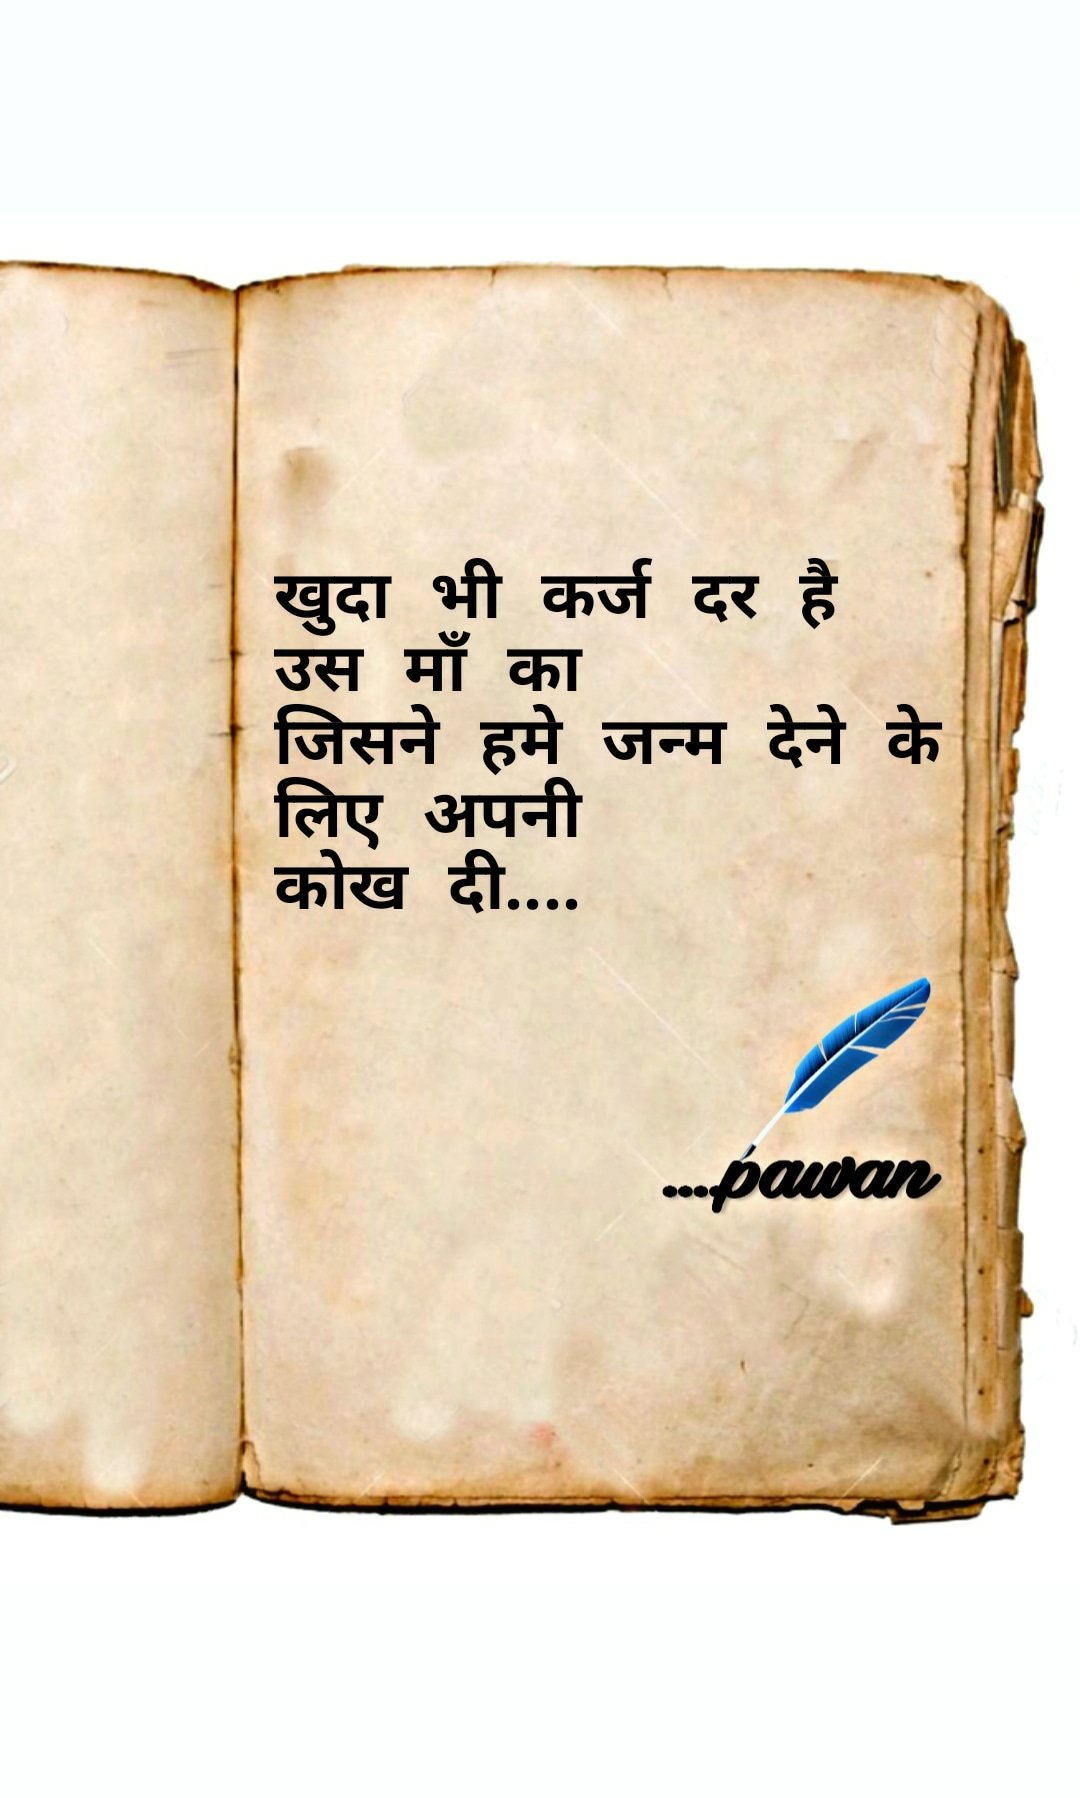 खुदा भी कर्ज दर है
उस माँ का
जिसने हमे जन्म देने के
लिए अपनी
कोख दी....
....pawan